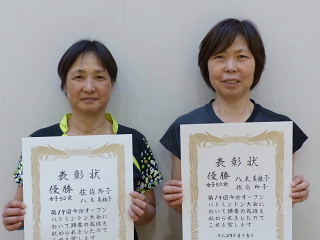 表彰状
優勝
女子50歳
佐伯 玲子
八木 美穂子
第19回今治オープン
バドミントン大会に
おいて頭書の成績を
収められましたので
これを賞します
表彰状
優勝
女子50歳
八木 美穂子
佐伯 玲子
第19回今治オープン
バドミントン大会に
おいて頭書の成績を
収められましたので
これを賞します